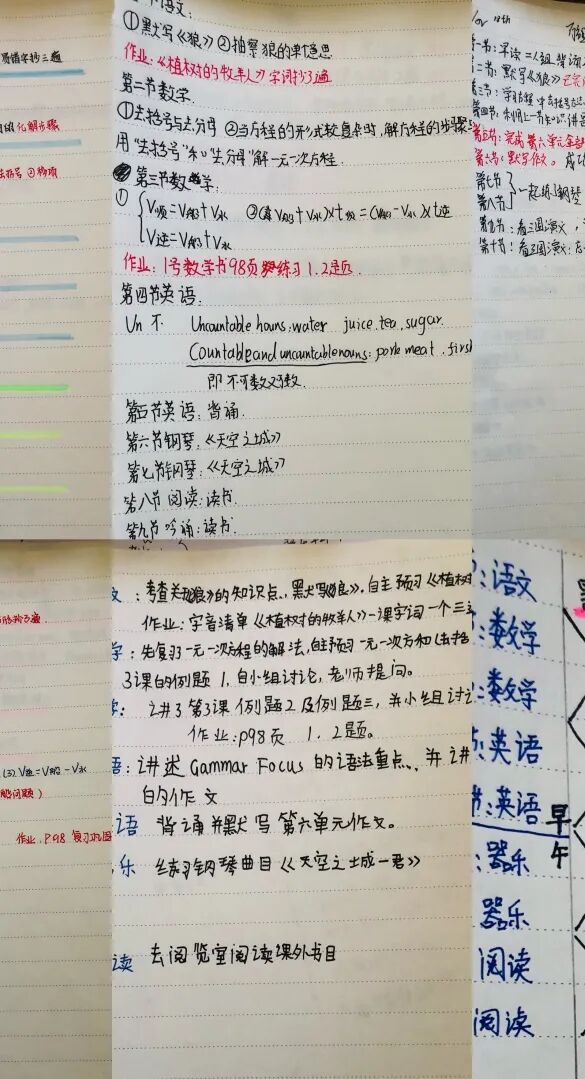 易错字抄三遍
化解步骤
去括号 ②移项
①默写《狼》②抽察狼的单追思
作业:《植树的牧羊人》字词抄3遍
第二节数学
①去括号与去分母 ②当方程的形式较复杂时,解方程的步骤
用"去括号"和"去分母"解一元一次方程.
第三节数学:
① V顺=V船+V水 ②(V船+V水)×t顺=(V船-V水)×t逆
V逆=V船+V水
作业:1号数学书98页 练习1.2题
第四节英语:
Un 不 Uncountable nouns:water juice.tea.sugar.
Countable and uncountable nouns: pork meat.
即不可数又可数.
第五节英语:背诵
第六节钢琴:《天空之城》
第七节钢琴:《天空之城》
第八节 阅读:读书.
第九节 吟诵:读书.
Nov 18th
第四节:利用上一节知识 讲
第五节:完成第六单元
第六节:默写作文。
第七节
第八节
一起练钢琴
第九节:看三国演义
第十节:看三国演义
(3) V逆=V船-V水
作业:P98 复习巩固
考查关《狼》的知识点、默写《狼》.自主预习《植树
作业:字音清单《植树的牧羊人》一课字词一个三
学:先复习一元一次方程的解法,自主预习一元一次方程(去括
3课的例题1.自小组讨论,老师提问。
讲3第3课例题2及例题三,并小组讨论
作业:p98页 1.2题。
语:讲述 Gammar Focus 的语法重点、并讲
的作文
语 背诵并默写第六单元作文。
乐 练习钢琴曲目《天空之城—君》
读 去阅览室阅读课外书目
:语文
:数学
:数学
:英语
节:英语
早
午
:器乐
器乐
阅读
阅读